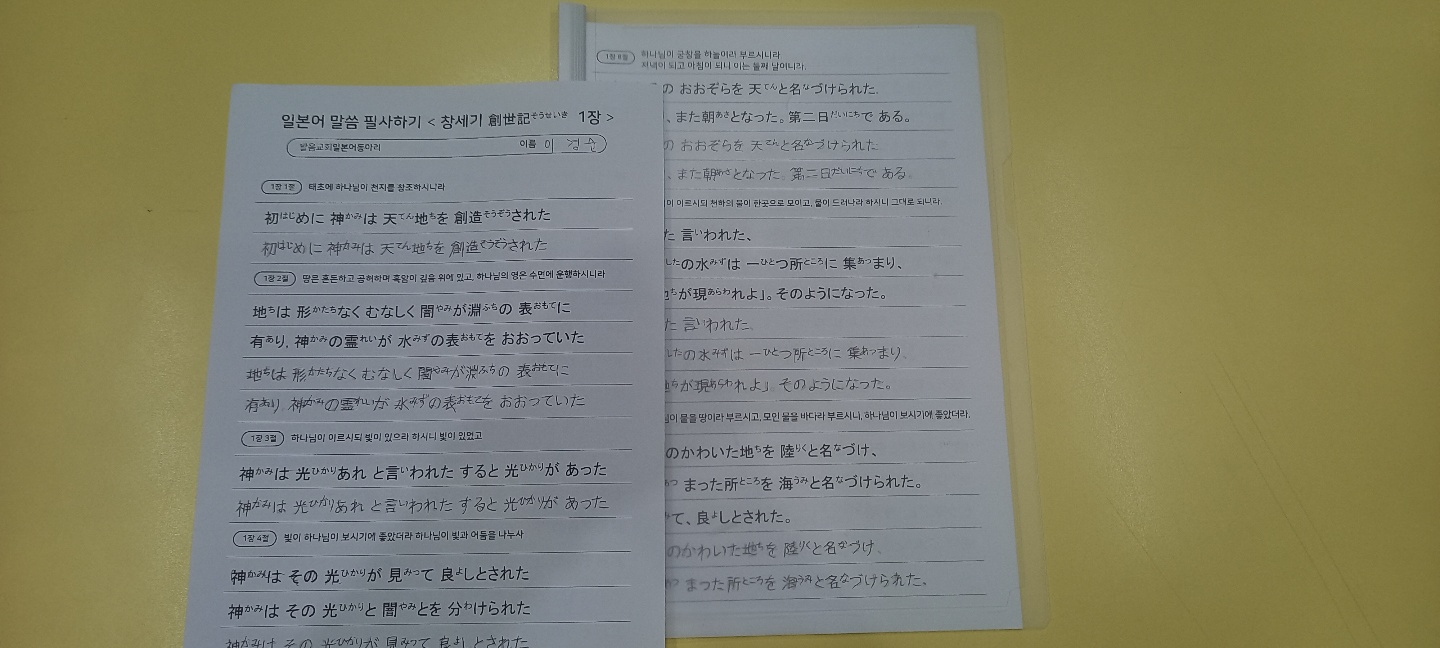 일본어 말씀 필사하기 < 창세기 創世記そうせいき 1장 >
말씀교회일본어동아리 이름 이 경순
1장 1절 태초에 하나님이 천지를 창조하시니라
初はじめに 神かみは 天てん地ちを 創造そうぞうされた
初はじめに 神かみは 天てん地ちを 創造そうぞうされた
1장 2절 땅은 혼돈하고 공허하며 흑암이 깊음 위에 있고, 하나님의 영은 수면에 운행하시니라
地ちは 形かたちなく むなしく 闇やみが淵ふちの 表おもてに
有あり, 神かみの霊れいが 水みずの表おもてを おおっていた
地ちは 形かたちなく むなしく 闇やみが淵ふちの 表おもてに
有あり 神かみの霊れいが 水みずの表おもてを おおっていた
1장 3절 하나님이 이르시되 빛이 있으라 하시니 빛이 있었고
神かみは 光ひかりあれ と言いわれた すると 光ひかりが あった
神かみは 光ひかりあれ と言いわれた すると 光ひかりが あった
1장 4절 빛이 하나님이 보시기에 좋았더라 하나님이 빛과 어둠을 나누사
神かみは その 光ひかりが 見みって 良よしとされた
神かみは その 光ひかりと 闇やみとを 分わけられた
神かみは その 光ひかりが 見みって 良よしとされた
1장 8절 하나님이 궁창을 하늘이라 부르시니라
저녁이 되고 아침이 되니 이는 둘째 날이니라.
の おおぞらを 天てんと名なづけられた.
、また朝あさとなった。第二日だいにちで ある。
の おおぞらを 天てんと名なづけられた
、また朝あさとなった 第二日だいにちで ある.
이 이르시되 천하의 물이 한곳으로 모이고, 뭍이 드러나라 하시니 그대로 되니라.
た 言いわれた、
したの水みずは 一ひとつ所ところに 集あつまり、
ちが現あらわれよ」。そのようになった。
た 言いわれた.
したの水みずは 一ひとつ所ところに 集あつまり.
ちが現あらわれよ」 そのようになった。
님이 뭍을 땅이라 부르시고, 모인 물을 바다라 부르시니, 하나님이 보시기에 좋았더라.
のかわいた地ちを 陸りくと名なづけ、
あつ まった所ところを 海うみと名なづけられた。
て、良よしとされた。
のかわいた地ちを 陸りくと名なづけ.
まった所ところを 海うみと名なづけられた.